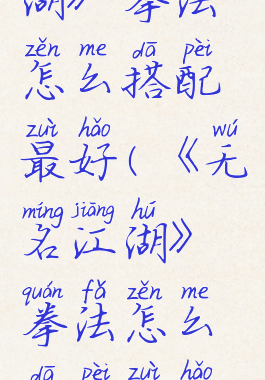 湖》 拳法
zěn me dā pèi
怎么搭配
zuì hǎo wú
最好(《无
míng jiāng hú
名江湖》
quán fǎ zěn me
拳法怎么
dā pèi zuì hǎo